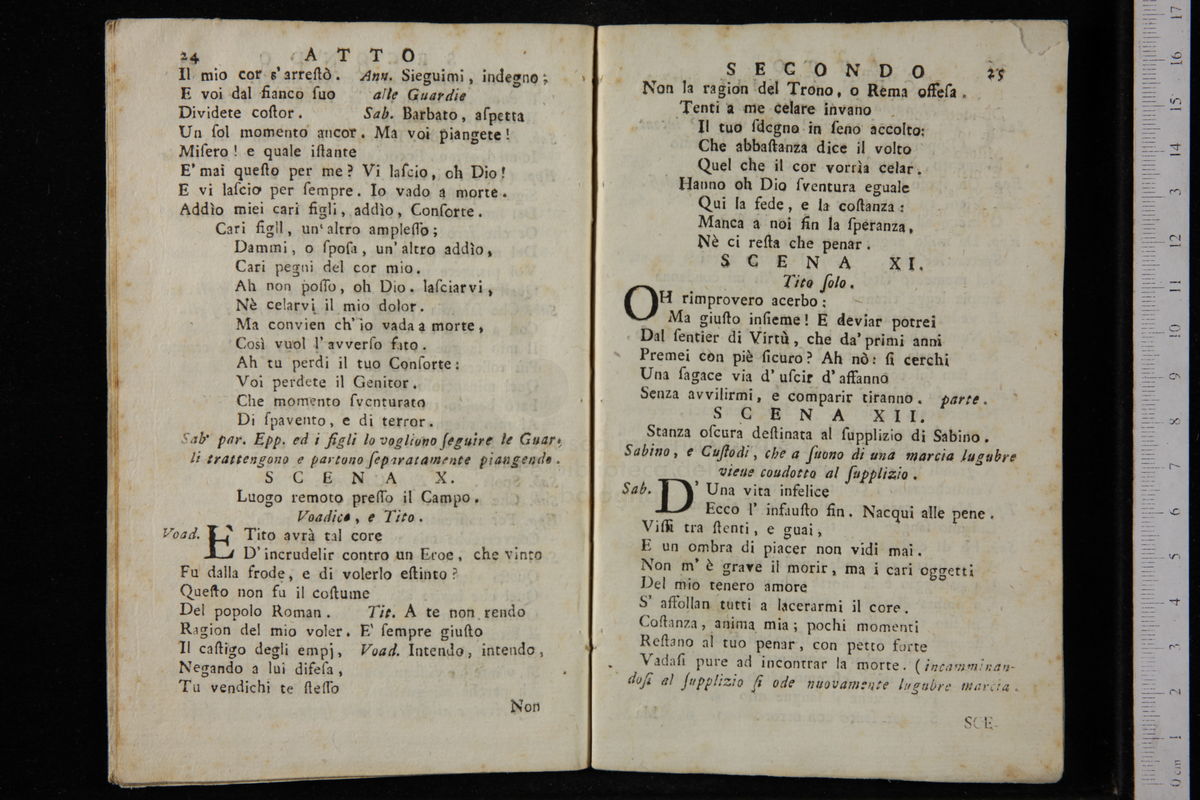 24 ATTO
Il mio cor s'arreſtò. Ann. Sieguimi, indegno;
E voi dal fianco ſuo alle Guardie
Dividete coſtor. Sab. Barbato, aſpetta
Un ſol momento ancor. Ma voi piangete!
Miſero! e quale iſtante
E' mai queſto per me? Vi laſcio, oh Dio!
E vi laſcio per ſempre. Io vado a morte.
Addìo miei cari figli, addìo, Conſorte.
Cari figlI, un'altro ampleſſo;
Dammi, o ſpoſa, un'altro addìo,
Cari pegni del cor mio.
Ah non poſſo, oh Dio. laſciarvi,
Nè celarvi il mio dolor.
Ma convien ch'io vada a morte,
Così vuol l'avverſo fato.
Ah tu perdi il tuo Conſorte:
Voi perdete il Genitor.
Che momento ſventurato
Di ſpavento, e di terror.
Sab' par. Epp. ed i figli lo vogliono ſeguire le Guar.
li trattengono e partono ſeparatamente piangendo.
SCENA X.
Luogo remoto preſſo il Campo.
Voadice, e Tito.
Voad. È Tito avrà tal core
D'incrudelir contro un Eroe, che vinto
Fu dalla frode, e di volerlo eſtinto?
Queſto non fu il coſtume
Del popolo Roman. Tit. A te non rendo
Ragion del mio voler. E' ſempre giuſto
Il caſtigo degli empj, Voad. Intendo, intendo,
Negando a lui difeſa,
Tu vendichi te ſteſſo
Non
SECONDO 25
Non la ragion del Trono, o Rema offeſa.
Tenti a me celare invano
Il tuo ſdegno in ſeno accolto:
Che abbaſtanza dice il volto
Quel che il cor vorrìa celar.
Hanno oh Dio ſventura eguale
Qui la fede, e la coſtanza:
Manca a noi fin la ſperanza,
Nè ci reſta che penar.
SCENA XI.
Tito ſolo.
OH rimprovero acerbo:
Ma giuſto inſieme! E deviar potrei
Dal ſentier di Virtù, che da' primi anni
Premei con piè ſicuro? Ah nò: ſi cerchi
Una ſagace via d'uſcir d'affanno
Senza avvilirmi, e comparir tiranno. parte.
SCENA XII.
Stanza oſcura deſtinata al ſupplizio di Sabino.
Sabino, e Cuſtodi, che a ſuono di una marcia lugubre
viene coudotto al ſupplizio.
Sab. D' Una vita infelice
Ecco l' infauſto fin. Nacqui alle pene.
Viſſi tra ſtenti, e guai,
E un ombra di piacer non vidi mai.
Non m' è grave il morir, ma i cari oggetti
Del mio tenero amore
S' affollan tutti a lacerarmi il core.
Coſtanza, anima mia; pochi momenti
Reſtano al tuo penar, con petto forte
Vadaſi pure ad incontrar la morte. (incamminan-
doſi al ſupplizio ſi ode nuovamente lugubre marcia.
SCE-
0 cm 1 2 3 4 5 6 7 8 9 10 11 12 13 14 15 16 17